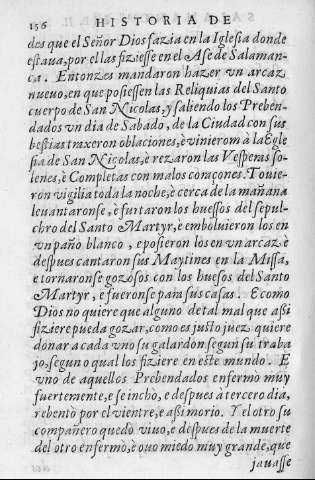 156 HISTORIA DE
des que el Señor Dios fazia en la Iglesia donde
estaua, por ellas fiziesse en el Ase de Salaman-
ca. Entonzes mandaron hazer vn arcaz
nueuo, en que posiessen las Reliquias del Santo
cuerpo de San Nicolas, y saliendo los Preben-
dados vn dia de Sabado, de la Ciudad con sus
bestias traxeron oblaciones, è vinierom à la Egle
sia de San Nicolas, e rezaron las Vesperas so-
lenes, è Completas con malos coraçones. Touie-
ron vigilia toda la noche, è cerca de la mañana
leuantaronse, è furtaron los huessos del sepul-
chro del Santo Martyr, e emboluieron los en
vn paño blanco, e posieron los en vn arcaz è
despues cantaron sus Maytines en la Missa,
e tornaronse gozosos con los huesos del Santo
Martyr, e fueronse para sus casas. E como
Dios no quiere que alguno de tal mal que assi
fiziere pueda gozar, como es justo juez quiere
donar a cada vno su galardon segun su traba
jo, segun o qual los fiziere en este mundo. E
vno de aquellos Prebendados enfermo muy
fuertemente, e se inchò, e despues à tercero dia,
rebentò por el vientre, e assi morio. Y el otro su
compañero quedo viuo, e despues de la muerte
del otro enfermò, è ouo miedo muy grande, que
jauasse